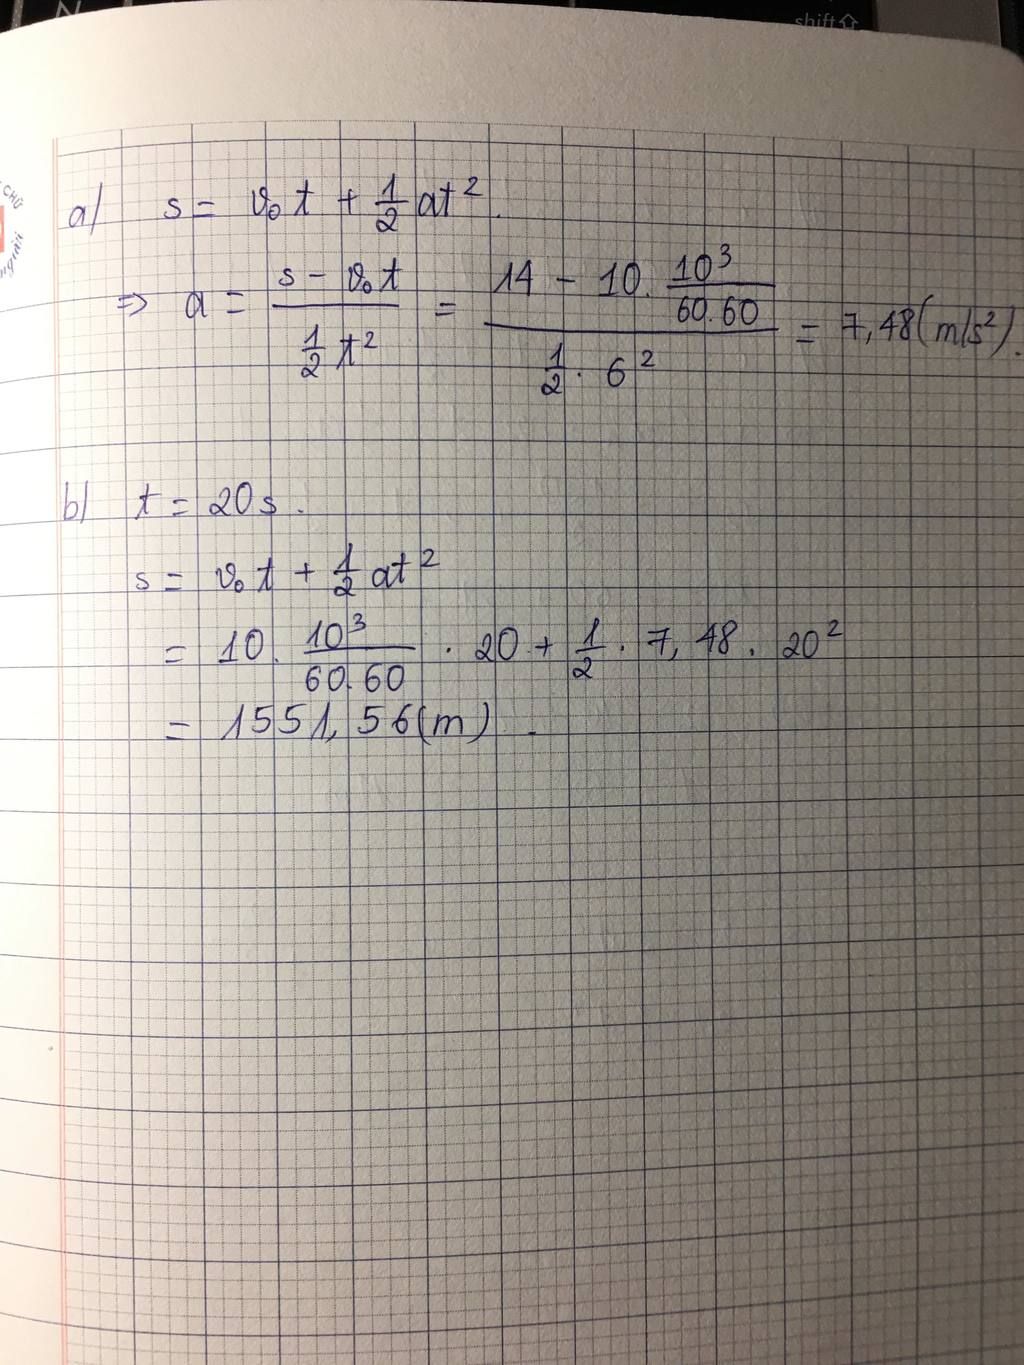 shift
CHỮ
a) s = v₀t + 1/2 at².
=> a = (s - v₀t)/(1/2 t²) = (14 - 10. 10³/60.60)/(1/2 . 6²) = 7,48 (m/s²).
b) t = 20s.
s = v₀t + 1/2 at²
= 10. 10³/60.60 . 20 + 1/2 . 7,48 . 20²
= 1551,56 (m).